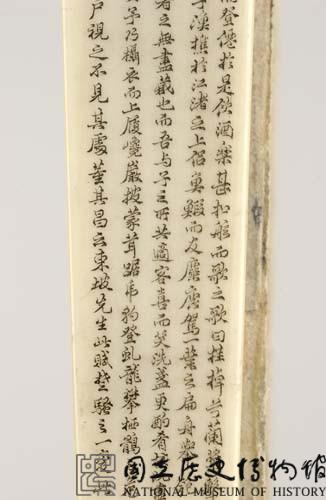 登僊於是飲酒樂甚扣舷而歌之歌曰桂棹兮蘭槳
子漁樵於江渚之上侶魚鰕而友麋鹿駕一葉之扁舟舉
者之無盡藏也而吾與子之所共適客喜而笑洗盞更酌肴核
予乃攝衣而上履巉巖披蒙茸踞虎豹登虬龍攀栖鶻
戶視之不見其處董其昌云東坡先生此賦楚騷之一變
國立歷史博物館
NATIONAL MUSEUM OF HISTORY